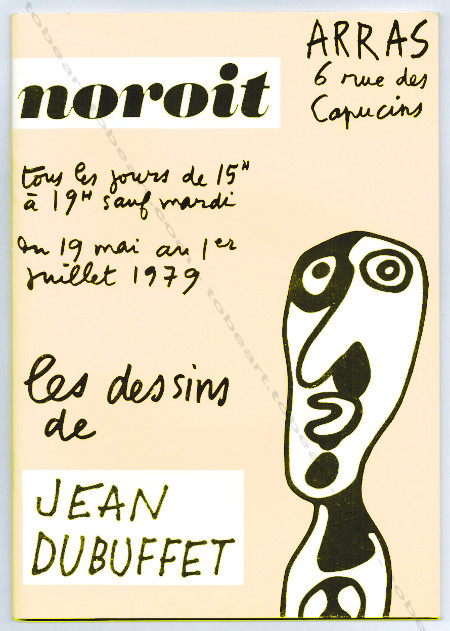 ARRAS
6 rue des
Capucins
noroit
tous les jours de 15H
à 19H sauf mardi
du 19 mai au 1er
juillet 1979
les dessins
de
JEAN
DUBUFFET